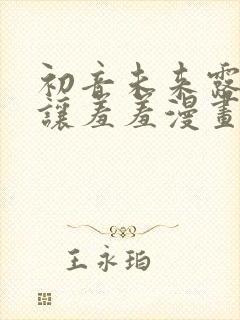 初音未来露
讓羞羞漫畫
王永珀